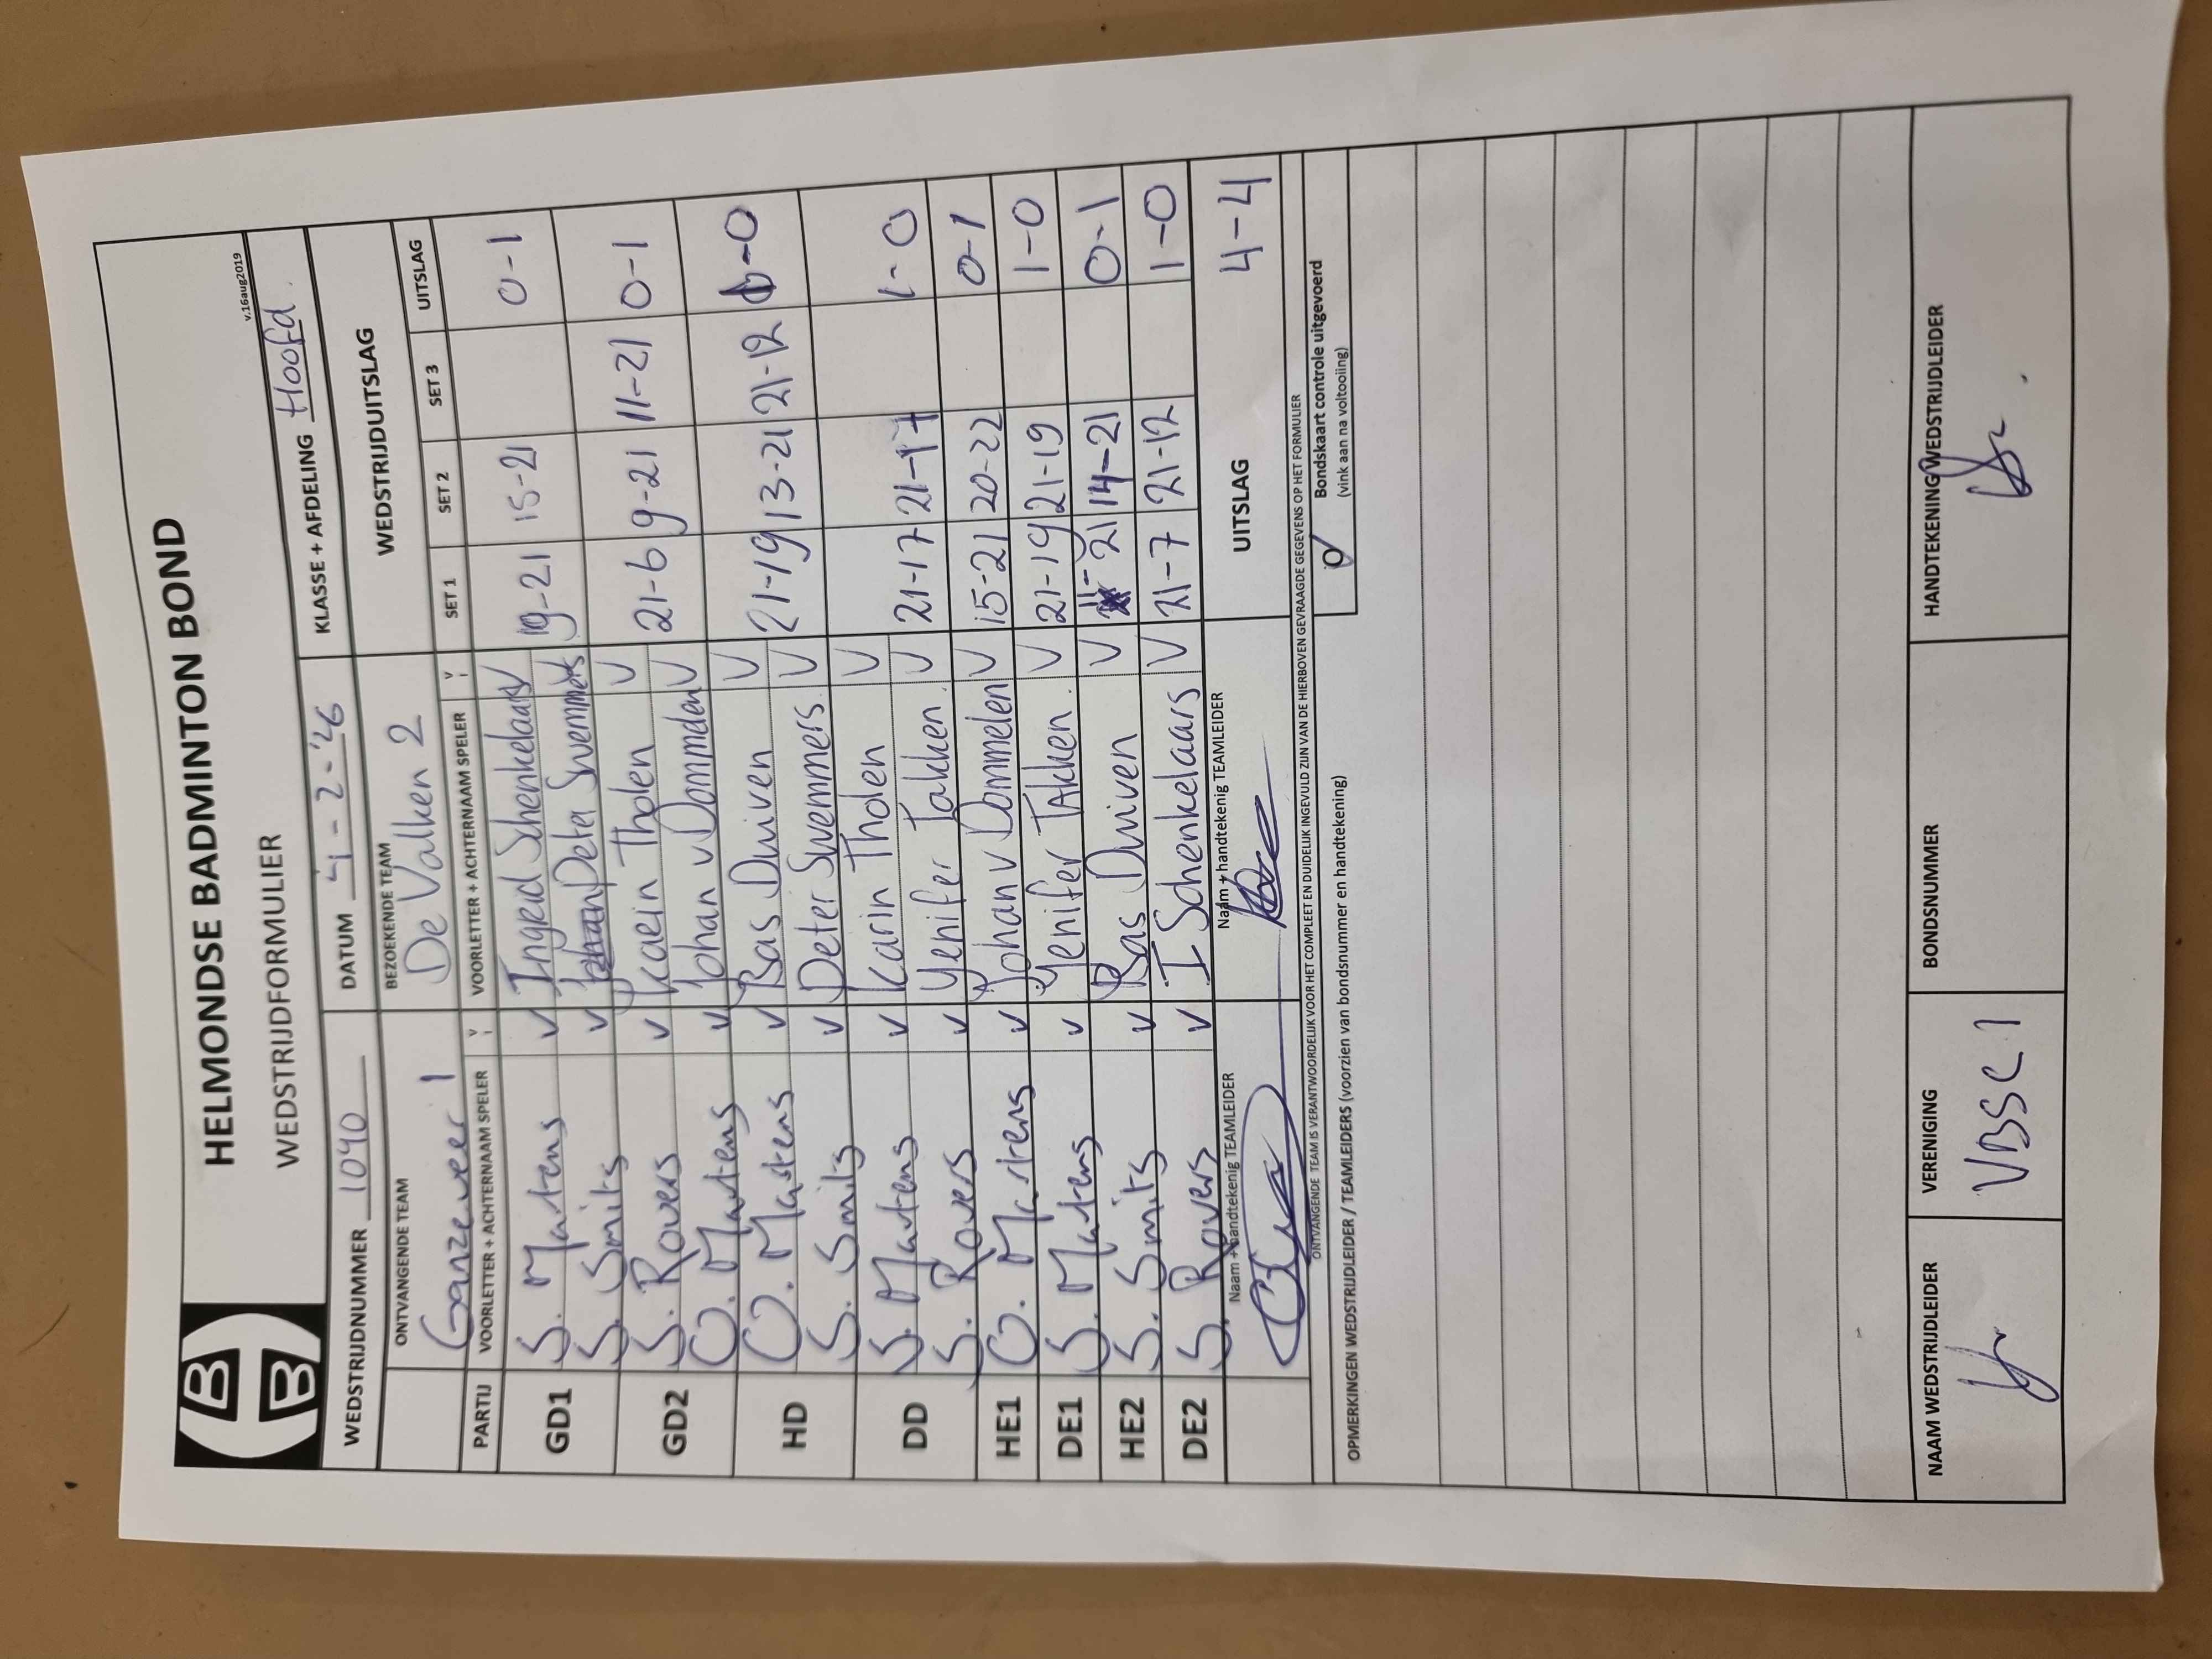 HELMONDSE BADMINTON BOND
WEDSTRIJDFORMULIER
v.16aug2019
WEDSTRIJDNUMMER 1040 DATUM 4-2-'26 KLASSE + AFDELING Hoofd.
ONTVANGENDE TEAM BEZOEKENDE TEAM WEDSTRIJDUITSLAG
Ganzeveer 1 De Valken 2
PARTIJ VOORLETTER + ACHTERNAAM SPELER V VOORLETTER + ACHTERNAAM SPELER V SET 1 SET 2 SET 3 UITSLAG
GD1 S. Martens V Ingrid Schenkelaars V 19-21 15-21 0-1
S. Smits V Peter Swemmers
GD2 S. Rovers V Karin Tholen V 21-6 9-21 11-21 0-1
O. Martens V Johan v Dommelen V
HD O. Martens V Bas Duiven V 21-19 13-21 21-12 1-0
S. Smits V Peter Swemmers V
DD S. Martens V Karin Tholen V 21-17 21-17 1-0
S. Rovers V Yenifer Takken V
HE1 O. Martens V Johan v Dommelen V 15-21 20-22 0-1
DE1 S. Martens V Yenifer TAkken V 21-19 21-19 1-0
HE2 S. Smits V Bas Duiven V 11-21 14-21 0-1
DE2 S. Rovers V I Schenkelaars V 21-7 21-12 1-0
Naam + handtekenig TEAMLEIDER Naam + handtekenig TEAMLEIDER UITSLAG 4-4
ONTVANGENDE TEAM IS VERANTWOORDELIJK VOOR HET COMPLEET EN DUIDELIJK INGEVULD ZIJN VAN DE HIERBOVEN GEVRAAGDE GEGEVENS OP HET FORMULIER
OPMERKINGEN WEDSTRIJDLEIDER / TEAMLEIDERS (voorzien van bondsnummer en handtekening)
Bondskaart controle uitgevoerd
(vink aan na voltooiing)
NAAM WEDSTRIJDLEIDER VERENIGING BONDSNUMMER HANDTEKENING WEDSTRIJDLEIDER
VBSC 1